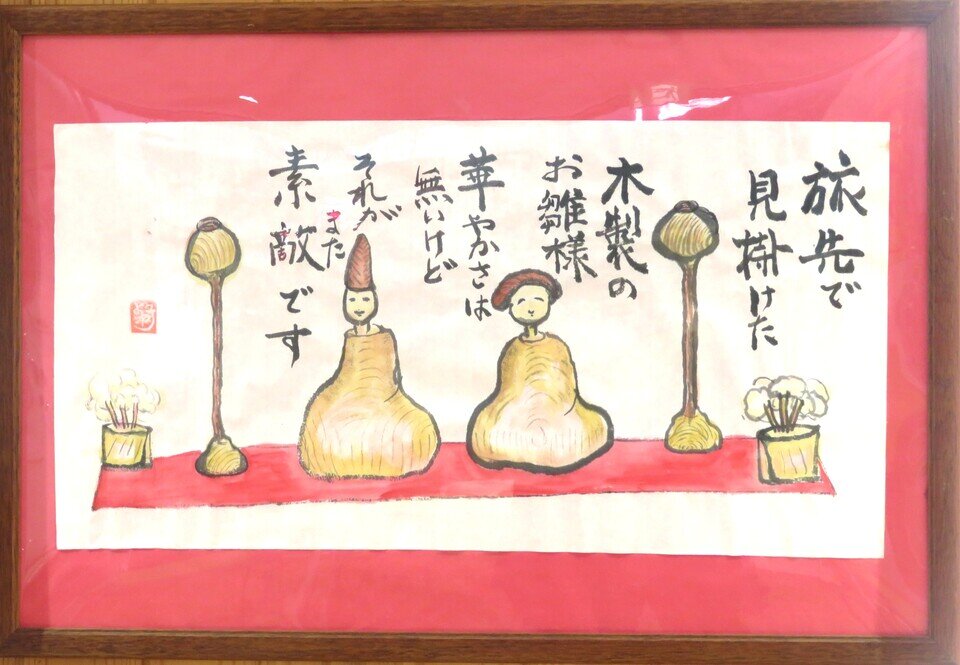 旅先で
見掛けた
木製の
お雛様
華やかさは
無いけど
それが
また
素敵です